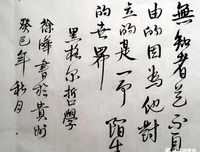 無知者是不自
由的因為他對
立的是一个陌生
的世界
黑格尔哲學
書於貴州
癸巳年秋月